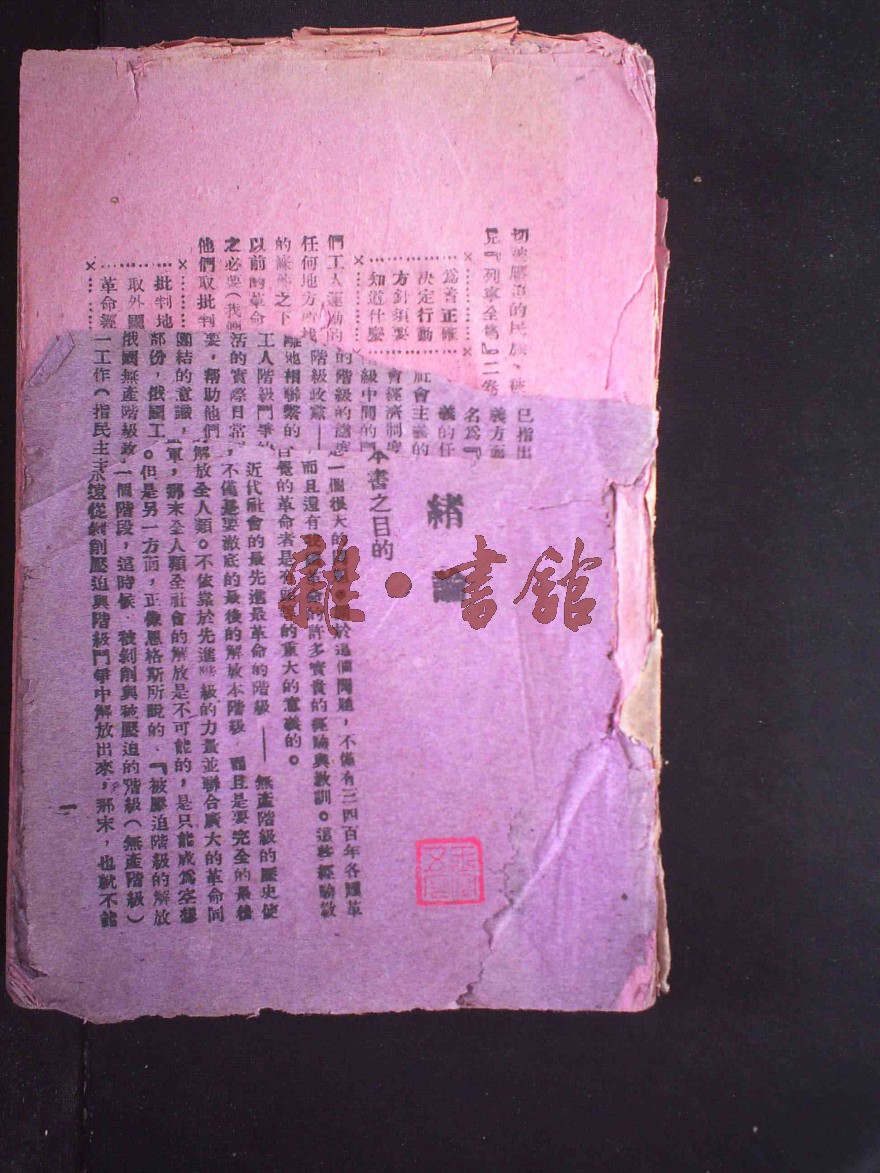 切被壓迫的民族、被
見『列寧全集』二卷
為着正確
決定行動
方針須要
知道什麼
們工人運動的
任何地方
的條件之下
以前的革命
之必要（我們
他們取批判
批判地
取外國
革命經
已指出
義方面
名為『
義的任
社會主義的
會經濟制度
級中間的鬥
的階級的態度
階級政黨——
離地相聯繫的
工人階級鬥爭的
活的實際日常
要，幫助他們
團結的意識，
部份，俄國工
俄國無產階級政
一工作（指民主主
緒論
本書之目的
一個很大的問題。於這個問題，不僅有三四百年各國革
而且還有我國革命的許多寶貴的經驗與教訓。這些經驗教
自覺的革命者是有的重大的意義的。
近代社會的最先進最革命的階級——無產階級的歷史使
，不僅是要澈底的最後的解放本階級，而且是要完全的最後
解放全人類。不依靠於先進階級的力量並聯合廣大的革命同
軍，那末全人類全社會的解放是不可能的，是只能成為空想
。但是另一方面，正像恩格斯所說的，『被壓迫階級的解放
一個階段，這時候，被剝削與被壓迫的階級（無產階級）
永遠從剝削壓迫與階級鬥爭中解放出來，那末，也就不能
一
雜·書館